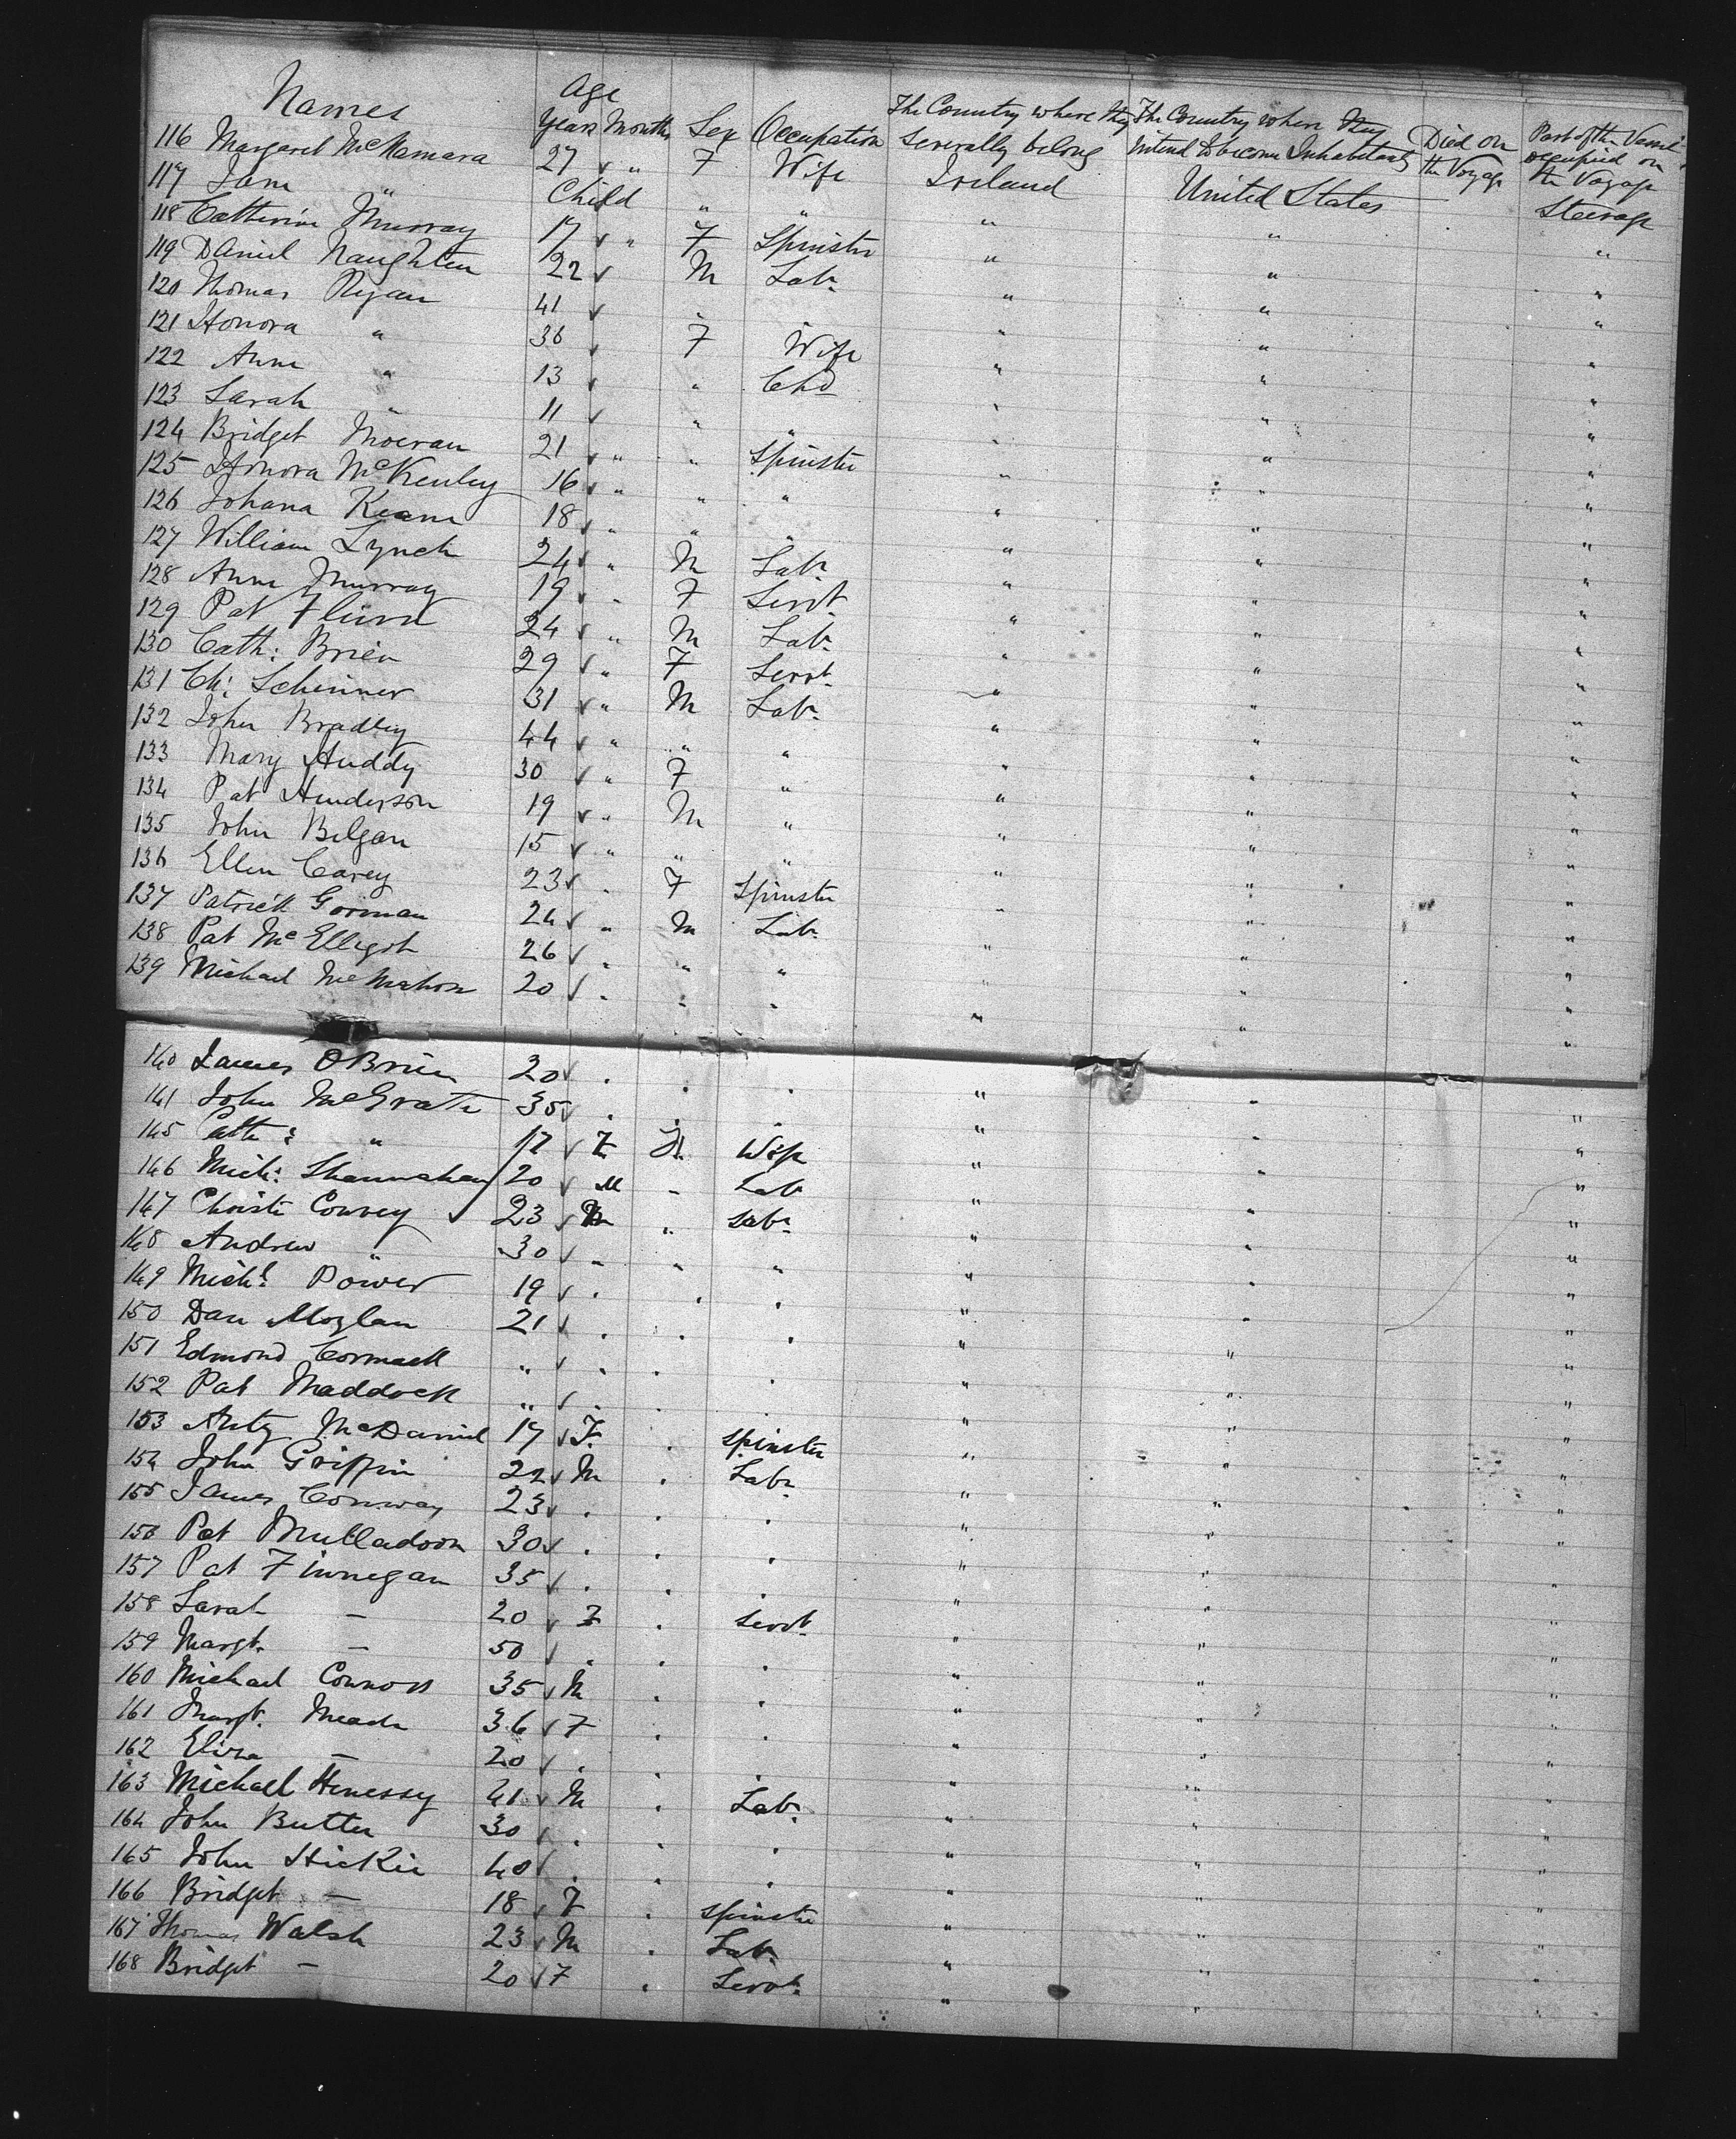 Names Age Years Months Sex Occupation The Country where they Severally belong The Country where they intend to become Inhabitants Died on the Voyage Part of the Vessel occupied on the Voyage
116 Margaret McNamara 27 ✓ " F Wife Ireland United States Steerage
117 Jane " Child " " " " "
118 Catherine Murray 17 ✓ " F Spinster " " "
119 Daniel Naughten 22 ✓ M Labr " " "
120 Thomas Ryan 41 ✓ " " " "
121 Honora " 36 ✓ F Wife " " "
122 Anne " 13 ✓ " Chd " " "
123 Sarah " 11 ✓ " " " " "
124 Bridget Moevan 21 ✓ " " Spinster " " "
125 Honora McKenley 16 ✓ " " " " " "
126 Johana Keane 18 ✓ " " " " " "
127 William Lynch 24 ✓ " M Labr " " "
128 Anne Murray 19 ✓ " F Servt " " "
129 Pat Flinn 24 ✓ " M Labr " " "
130 Cath: Brien 29 ✓ " F Servt " " "
131 Ch: Schinner 31 ✓ " M Labr " " "
132 John Bradley 44 ✓ " " " " " "
133 Mary Huddy 30 ✓ " F " " " "
134 Pat Henderson 19 ✓ " M " " " "
135 John Bilgan 15 ✓ " " " " " "
136 Ellen Carey 23 ✓ " F Spinster " " "
137 Patrick Gorman 24 ✓ " M Labr " " "
138 Pat McElligot 26 ✓ " " " " " "
139 Michael McMahon 20 ✓ " " " " " "
140 James OBrien 20 ✓ " " " " " "
141 John McGrath 35 ✓ " " " " " "
145 Cath: " 17 ✓ F Wife " " "
146 Mich: Shannahan 20 ✓ M " Labr " " "
147 Christe Convey ✓ 23 ✓ M " Labr " " "
148 Andrew " 30 ✓ " " " " " "
149 Michl Power 19 ✓ " " " " " "
150 Dan Moylan 21 ✓ " " " " " "
151 Edmond Cormack " ✓ " " " " " "
152 Pat Maddock " ✓ " " " " " "
153 Anty McDaniel 17 ✓ F " Spinster " " "
154 John Griffin 22 ✓ M " Labr " " "
155 James Conway 23 ✓ " " " " " "
156 Pat Mulladoon 30 ✓ " " " " " "
157 Pat Finnegan 35 ✓ " " " " " "
158 Sarah — 20 ✓ F " Servt " " "
159 Margt. — 50 ✓ " " " " " "
160 Michael Connors 35 ✓ M " " " " "
161 Margt. Meade 36 ✓ F " " " " "
162 Eliza — 20 ✓ " " " " " "
163 Michael Henessy 41 ✓ M " Labr " " "
164 John Butler 30 ✓ " " " " " "
165 John Hickie 40 ✓ " " " " " "
166 Bridget — 18 ✓ F " Spinster " " "
167 Thomas Walsh 23 ✓ M " Labr " " "
168 Bridget — 20 ✓ F " Servt. " " "